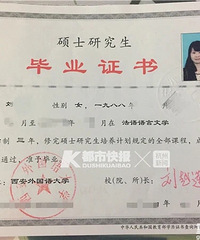 硕士研究生
毕业证书
刘 性别 女，一九八八年
月至 年 月在 法语语言文学
制 三 年，修完硕士研究生培养计划规定的全部课程，成
通过，准予毕业。
K 都市快报
DUSHIKUAIBAO
橙柿
西安外国语大学
校(院、所)长：
中华人民共和国教育部学历证书查询网